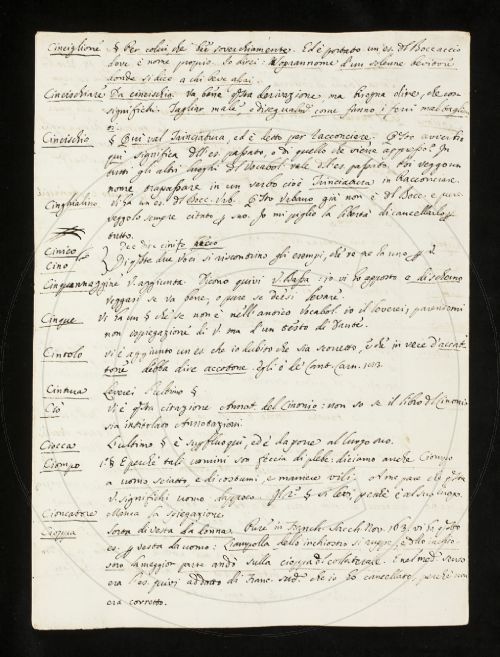 Cinciglione § Per colui, che bee soverchiamente. Ed è portato un es. dl Boccaccio
dove è nome proprio. Io direi: Soprannome d'un solenne bevitore
donde si dice a chi beve assai.
Cincischiare Da cincischio. Va bene qsta derivazione, ma bisogna dire, che con
significhi. Tagliar male, e disegualmte come fanno i ferri mal taglien
ti.
Cincischio § Qui val Trinciatura, ed è detto per l'acconciare. Qsto avverbio
qui significa dll'es. passato, o di quello che viene appresso? In
tutti gli altri luoghi dl Vocabol. vale dll'es. passato. Poi veggo un
nome trapassare in un verbo cioè Trinciatura in l'acconciare.
Cinghialino Vi ha un es. dl Bocc. Urb. Qsto Urbano già non è dl Bocc. e pure
veggolo sempre citato p suo. Io mi piglio la libertà di cancellarlo p
tutto.
Cinico Dee dire cinico
Cino Di qste due voci si riscontrino gli esempi, che ve ne ha uno p
v'aggiunta. Dicono quivi V. Bassa: io vi ho apposto e di scherno
veggasi se va bene, o pure se deesi levare.
Cinque Vi ha un § che se non è nell'antico Vocabol. io il leverei, parendomi
non ispiegazione di V. ma d'un testo di Dante.
Cintolo vi è aggiunto un es. che io dubito che sia scorretto, e che in vece d'accat
tone debba dire accotone. Egli è de' Cant. Carn. 103.
Cintura Leverei l'ultimo §
Ciò Vi è qsta citazione Annot. del Cinonio: non so se il libro dl Cinonio
sia intitolato Annotazioni
Ciocca L'ultimo § è superfluo qui, ed è da porre al luogo suo.
Ciompo 1° § E perchè tali uomini son feccia di plebe: diciamo anche Ciompo
a uomo sciatto, e di costumi, e maniere vili: a me pare che qsta
V. significhi uomo dappoco. Il 2° § si levi, perchè è al suo luogo.
Cioncatore Manca la spiegazione.
Cioppa Sorta di vesta da donna. Pure in Franch. Sacch. Nov. 163. vi ha qsto
es. p vesta da uomo: l'ampolla dello inchiostro si ruppe, e dllo inchio
stro la maggior parte andò sulla cioppa dl collaterale. E nel med. senso
era l'es. quivi addotto di Franc. Sacch. che io ho cancellato, perchè non
era corretto.